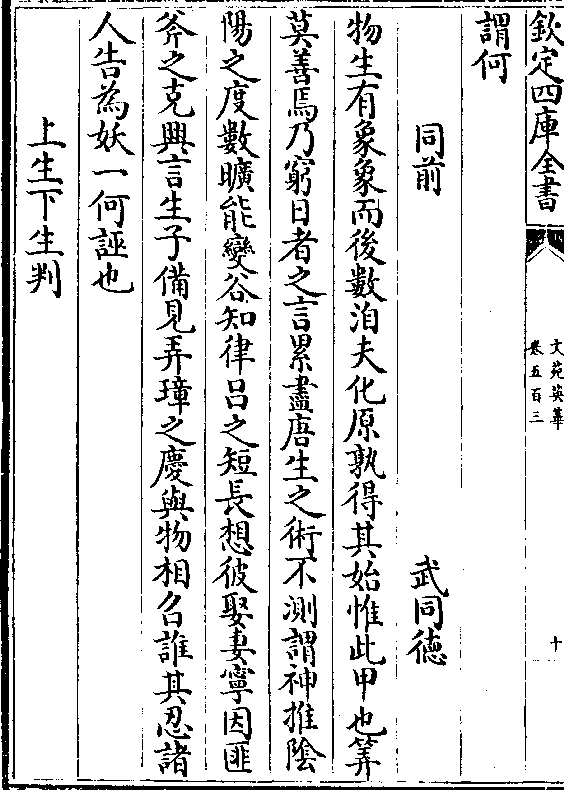 欽定四庫全書
文苑英華
卷五百三
十
謂何
同前 武同德
物生有象象而後數洎夫化原孰得其始惟此甲也筭
莫善焉乃窮日者之言累盡唐生之術不測謂神推陰
陽之度數曠能變谷知律呂之短長想彼娶妻寧因匪
斧之克興言生子備見弄璋之慶與物相召誰其忍諸
人告為妖一何誣也
上生下生判